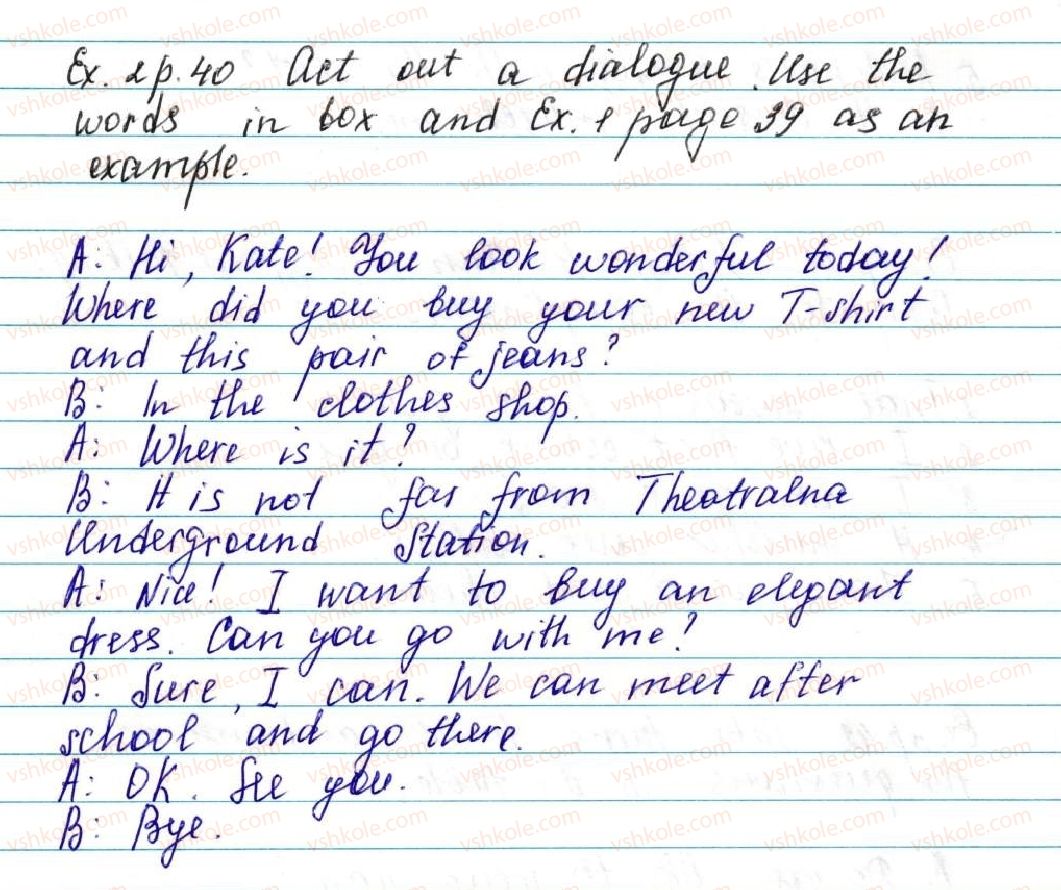 Ex. 2 p. 40 Act out a dialogue. Use the
words in box and Ex. 1 page 39 as an
example.
A: Hi, Kate! You look wonderful today!
Where did you buy your new T-shirt
and this pair of jeans?
B: In the clothes shop.
A: Where is it?
B: It is not far from Theatralna
Underground Station.
A: Nice! I want to buy an elegant
dress. Can you go with me?
B: Sure, I can. We can meet after
school and go there.
A: OK. See you.
B: Bye.